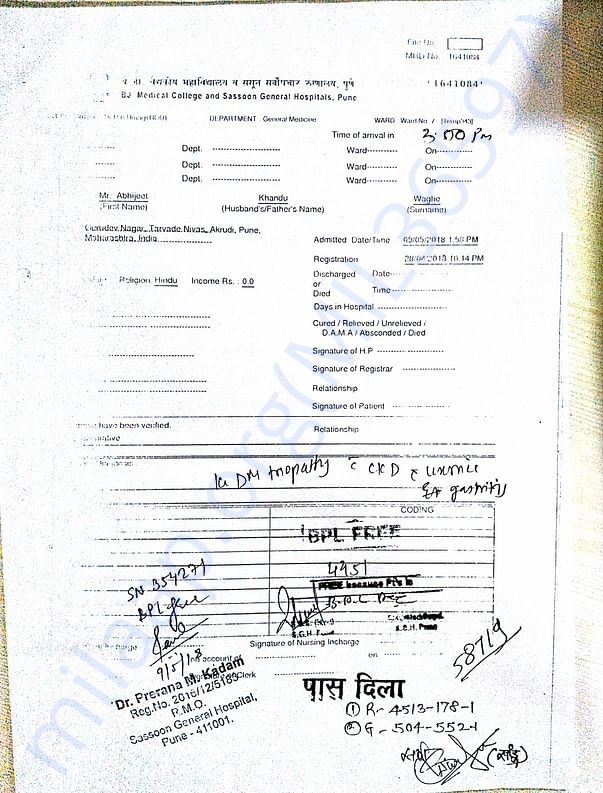 File No
MRD No. 1641084
वैद्यकीय महाविद्यालय व ससून सर्वोपचार रुग्णालय, पुणे
'1641084'
BJ Medical College and Sassoon General Hospitals, Pune
DEPARTMENT : General Medicine WARD Ward No. /
Time of arrival in 3:00 PM
Dept. Ward On
Dept. Ward On
Dept. Ward On
Mr. Abhijeet Khandu Waghe
(First Name) (Husband's/Father's Name) (Surname)
Gurudev Nagar, Tarvade Nivas, Akrudi, Pune,
Maharashtra, India
Admitted Date/Time 09/05/2018 1:58 PM
Registration 28/04/2018 10:14 PM
Religion: Hindu Income Rs. : 0.0
Discharged Date
or
Died Time
Days in Hospital
Cured / Relieved / Unrelieved /
D.A.M.A / Absconded / Died
Signature of H.P
Signature of Registrar
Relationship
Signature of Patient
have been verified.
Relationship
DM c CKD c uremic
gastritis
CODING
BPL FREE
SN 354271
4951
BPL free
FREE because Pt's is
S.G.H. Pune
S.G.H. Pune
Signature of Nursing Incharge
9/5/18
on account of on
58719
Clerk
Dr. Prerana M. Kadam
Reg.No. 2016/12/5183
R.M.O.
Sassoon General Hospital,
Pune - 411001.
पास दिला
① R- 4513-178-1
② G - 504-5524
milaap.org(MIL36597)